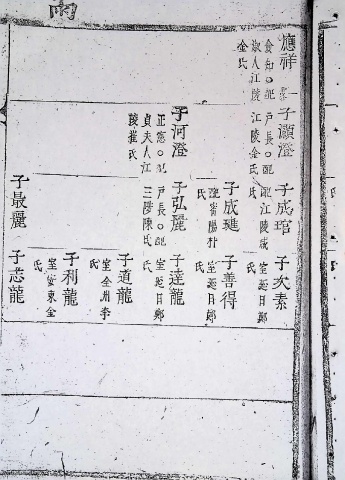 應祥
食知○配
淑人江陵
金氏
子灝澄
戶長○配
江陵金氏
子河澄
正憲○配
貞夫人江
陵崔氏
子成琯
配江陵咸
氏
子成璡
配密陽朴
氏
子弘麗
戶長○配
三陟陳氏
子最麗
子次素
室延日鄭
氏
子善得
室延日鄭
氏
子達龍
室延日鄭
氏
子道龍
室全州李
氏
子利龍
室安東金
氏
子惑龍